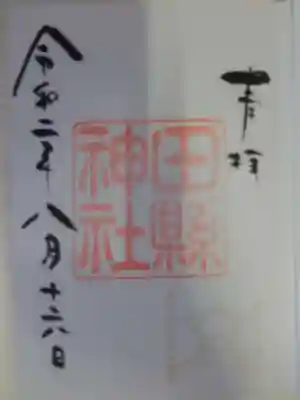 奉拝
田縣
神社
令和二年八月十六日